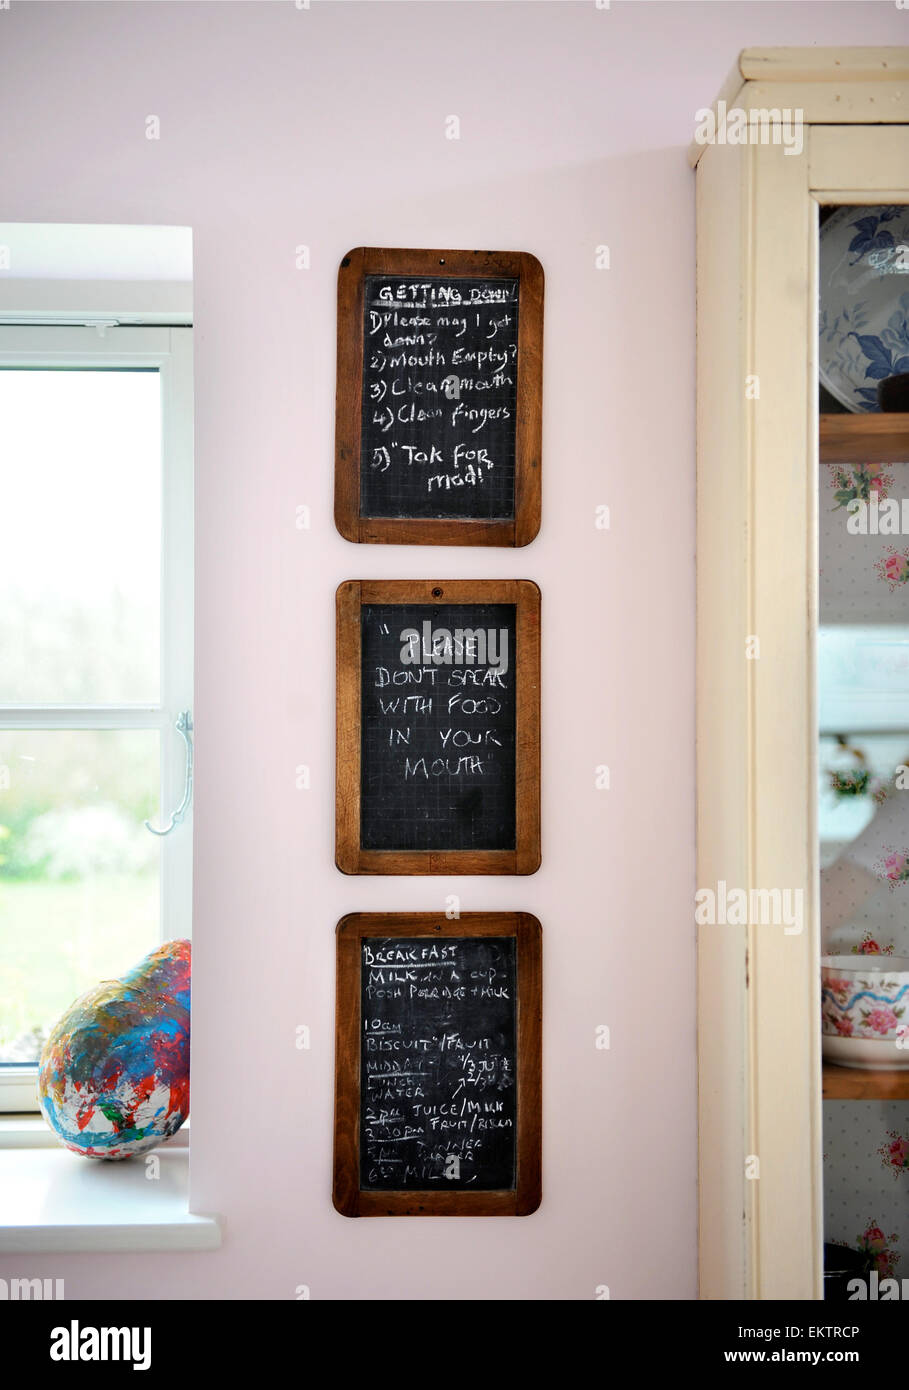 GETTING DOWN
1) Please may I get
down?
2) Mouth Empty?
3) Clean mouth
4) Clean fingers
5) "Tak for
mad!
"PLEASE
DON'T SPEAK
WITH FOOD
IN YOUR
MOUTH"
BREAKFAST
MILK IN A CUP
POSH PORRIDGE + MILK
10am
BISCUIT"/FRUIT
MIDDAY 1/3 JUICE
LUNCH 2/3
WATER
2pm JUICE/MILK
3.30pm FRUIT/
5pm DINNER
WATER
6 MILK
alamy
alamy
Image ID: EKTRCP
www.alamy.com